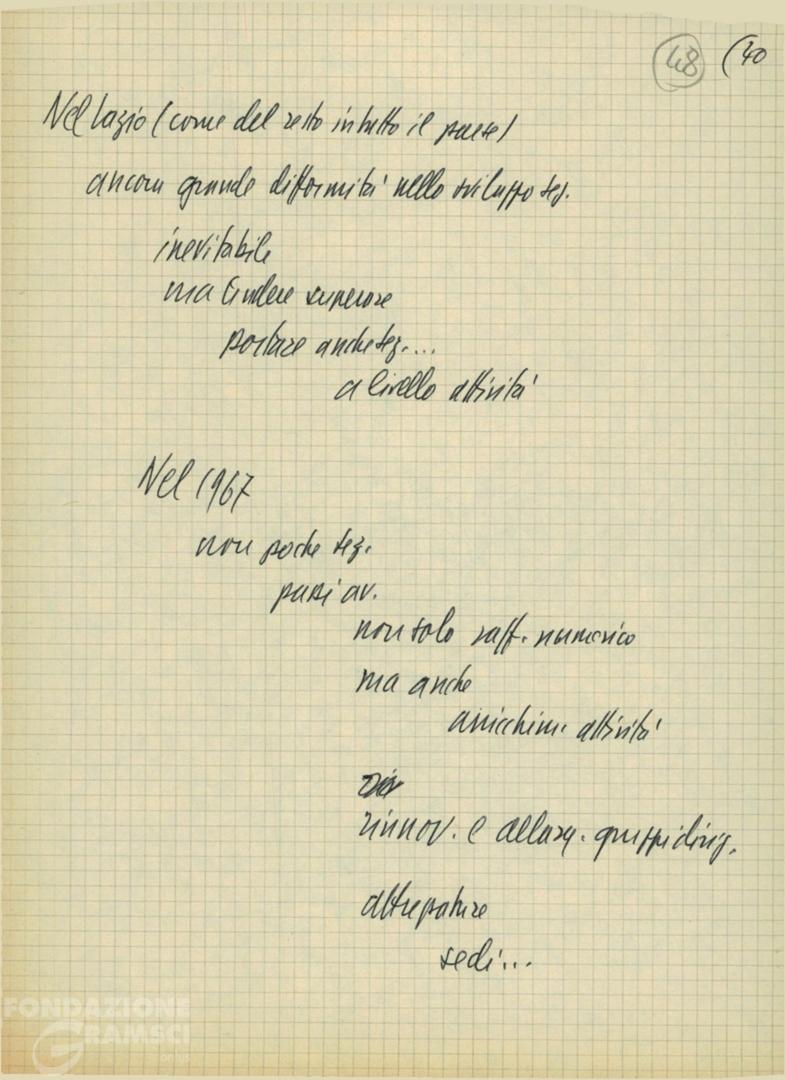 48 (40
Nel Lazio (come del resto in tutto il paese)
ancora grande difformità nello sviluppo sez.
inevitabile
ma tendere superare
portare anche sez....
a livello attività
Nel 1967
non poche sez.
passi av.
non solo raff. numerico
ma anche
arricchim. attività
rinnov. e allarg. gruppi dirig.
attrezzature
sedi...
FONDAZIONE
GRAMSCI